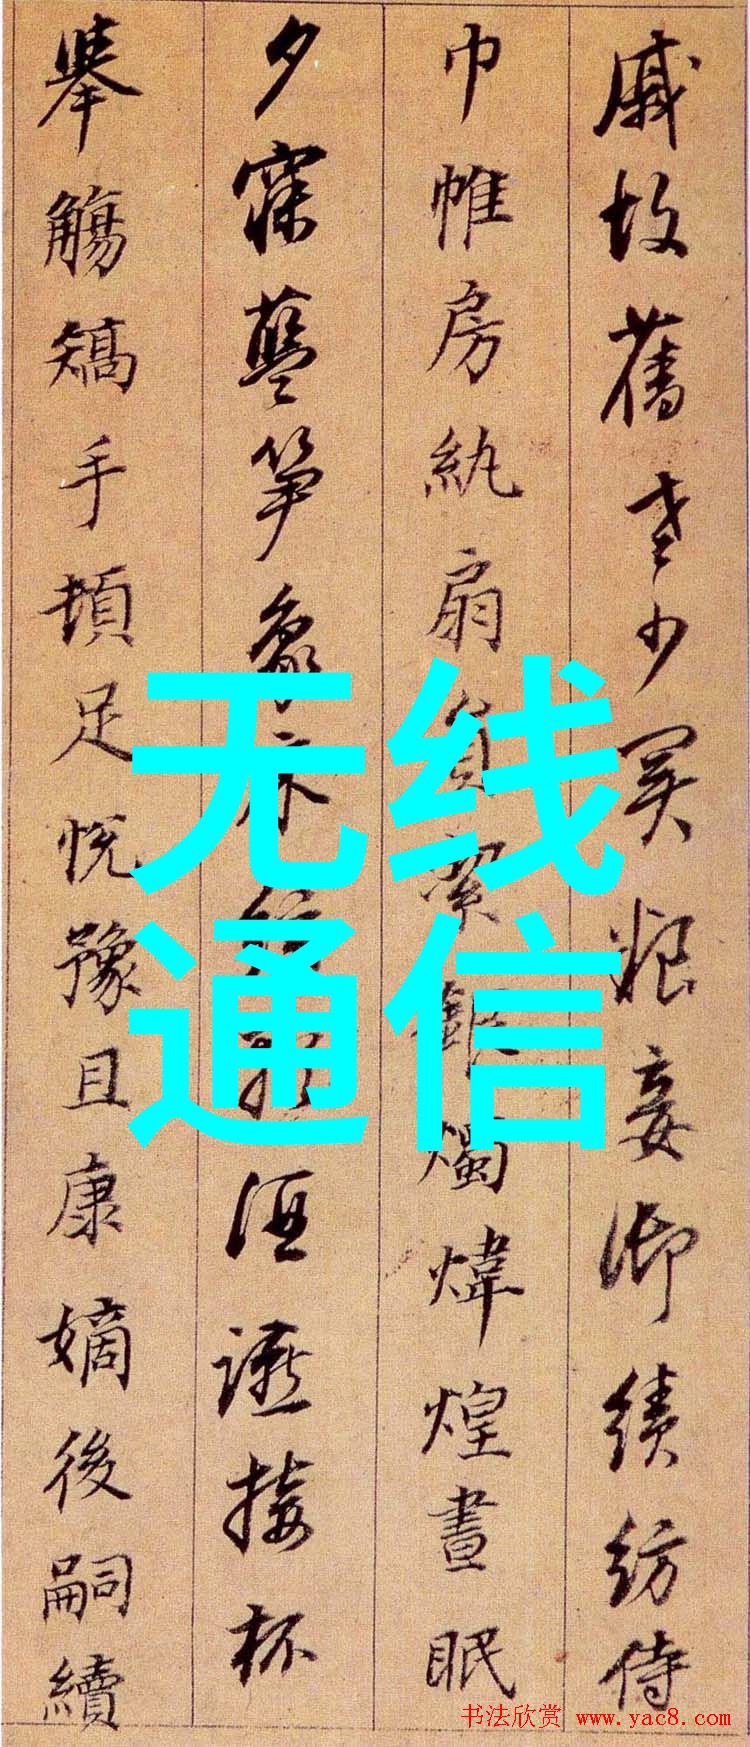 戚故舊老少異粮妾御績紡侍
巾帷房紈扇員絜銀燭煒煌晝眠
夕寐藍笋象床絃歌酒讌接杯
舉觴矯手頓足悅豫且康嫡後嗣續
无线
通信
书法欣赏 www.yac8.com